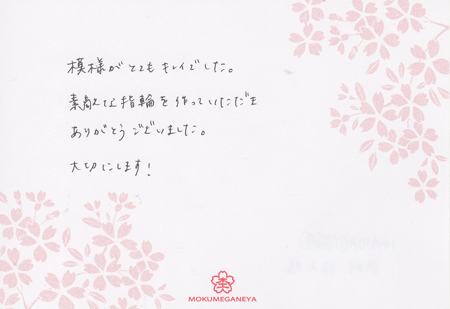 模様がとてもキレイでした。
素敵な指輪を作っていただき
ありがとうございました。
大切にします!
MOKUMEGANEYA